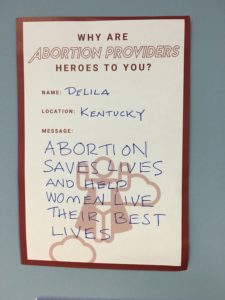 WHY ARE
ABORTION PROVIDERS
HEROES TO YOU?
NAME: DELILA
LOCATION: KENTUCKY
MESSAGE:
ABORTION
SAVES LIVES
AND HELP
WOMEN LIVE
THEIR BEST
LIVES